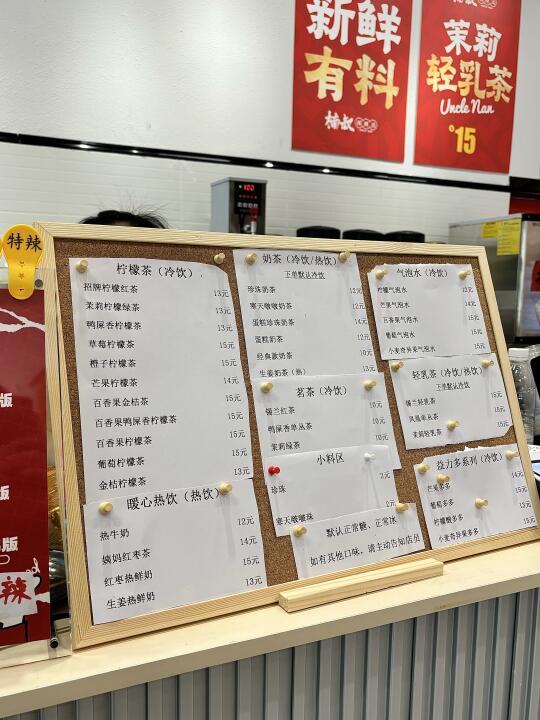 新鲜
有料
楠叔
茉莉
轻乳茶
Uncle Nan
15
100
特辣
版
版
版
辣
柠檬茶（冷饮）
招牌柠檬红茶 13元
茉莉柠檬绿茶 13元
鸭屎香柠檬茶 13元
草莓柠檬茶 15元
橙子柠檬茶 15元
芒果柠檬茶 14元
百香果金桔茶 15元
百香果鸭屎香柠檬茶 15元
百香果柠檬茶 15元
葡萄柠檬茶 15元
金桔柠檬茶 13元
暖心热饮（热饮）
热牛奶 12元
姨妈红枣茶 14元
红枣热鲜奶 15元
生姜热鲜奶 13元
奶茶（冷饮/热饮）
下单默认冷饮
珍珠奶茶 12元
寒天啵啵奶茶 12元
蛋糕珍珠奶茶
蛋糕奶茶 12元
经典款奶茶 10元
生姜奶茶（热） 13元
茗茶（冷饮）
锡兰红茶 10元
鸭屎香单丛茶 10元
茉莉绿茶 10元
小料区
珍珠 2元
寒天啵啵珠 2元
默认正常糖、正常冰
如有其他口味，请主动告知店员
气泡水（冷饮）
柠檬气泡水 12元
芒果气泡水
百香果气泡水
葡萄气泡水
小麦奇异果气泡水
轻乳茶（冷饮/热饮）
下单默认冷饮
锡兰轻乳茶 15元
凤凰单丛茶
茉莉轻乳茶 15元
益力多系列（冷饮）
芒果多多 14元
葡萄多多
柠檬酸多多
小麦奇异果多多